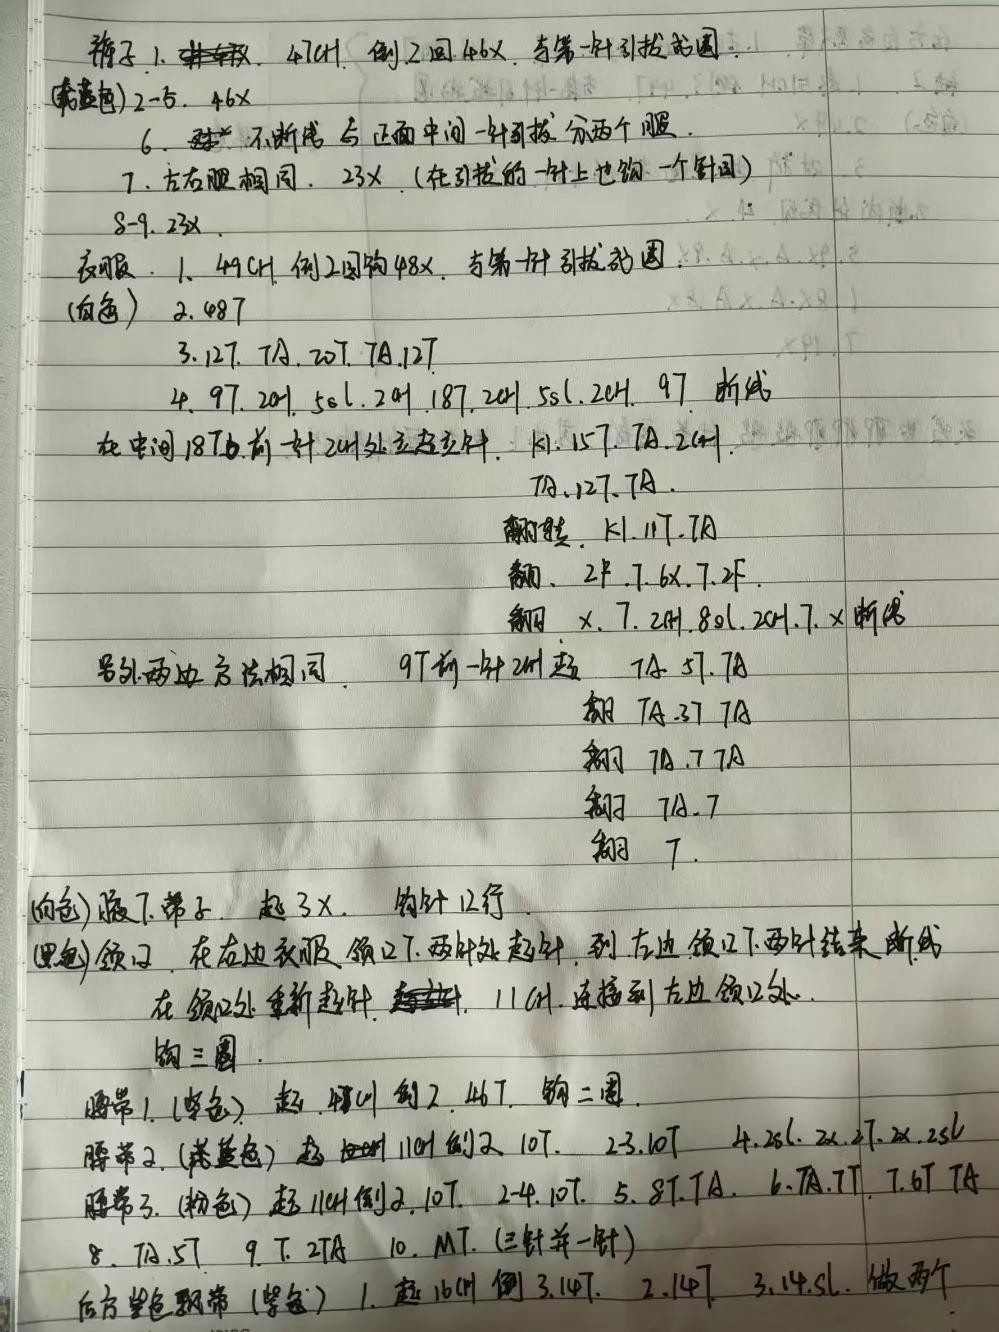 裤子 1. 47CH. 倒2回46X. 与第一针引拔成圈.
(藏蓝色) 2-5. 46X
6. 不断线 与正面中间一针引拔 分两个腿.
7. 左右腿相同. 23X. (在引拔的一针上也钩一个针目)
8-9. 23X.
衣服. 1. 49CH. 倒2回钩48X. 与第一针引拔成圈.
(白色) 2. 48T
3. 12T. TA. 20T. TA. 12T
4. 9T. 2CH. 5sl. 2CH. 18T. 2CH. 5sl. 2CH. 9T 断线
在中间18T的前一针2CH处立起立针. K1. 15T. TA. 2CH.
TA. 12T. TA.
翻转. K1. 11T. TA
翻. 2F. T. 6X. T. 2F.
翻 X. T. 2CH. 8sl. 2CH. T. X 断线
另外两边方法相同. 9T前一针2CH起 TA. 5T. TA
翻 TA. 3T TA
翻 TA. T TA
翻 TA. T
翻 T.
(白色) 腋下带子. 起3X. 钩针12行.
(黑色) 领口. 在右边衣服领口下两针处起针. 到左边领口下两针结束 断线
在领口处重新起针. 11CH. 连接到左边领口处.
钩三圈.
腰带1. (紫色) 起. 48CH 倒2. 46T. 钩二圈.
腰带2. (藏蓝色) 起 11CH 倒2 10T. 2-3. 10T 4. 2sl. 2x. 2T. 2x. 2sl
腰带3. (粉色) 起11CH倒2. 10T. 2-4. 10T. 5. 8T. TA. 6. TA. 7T. 7. 6T TA
8. TA. 5T 9. T. 2TA 10. MT. (三针并一针)
后方紫色飘带 (紫色) 1. 起16CH 倒3. 14T. 2. 14T. 3. 14. sl. 做两个